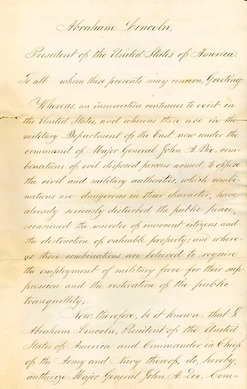 Abraham Lincoln,
President of the United States of America.
To all whom these presents may concern, Greeting:
Whereas, an insurrection continues to exist in
the United States, and whereas there are in the
military Department of the East, now under the
command of Major General John A. Dix, com-
binations of evil disposed persons armed to oppose
the civil and military authorities, which combi-
nations are dangerous in their character, have
already seriously disturbed the public peace,
occasioned the murder of innocent citizens and
the destruction of valuable property: and where-
as those combinations are believed to require
the employment of military force for their sup-
pression and the restoration of the public
tranquillity;
Now, therefore, be it known, that I
Abraham Lincoln, President of the United
States of America and Commander in Chief
of the Army and Navy thereof, do, hereby,
authorize Major General John A. Dix, Com-